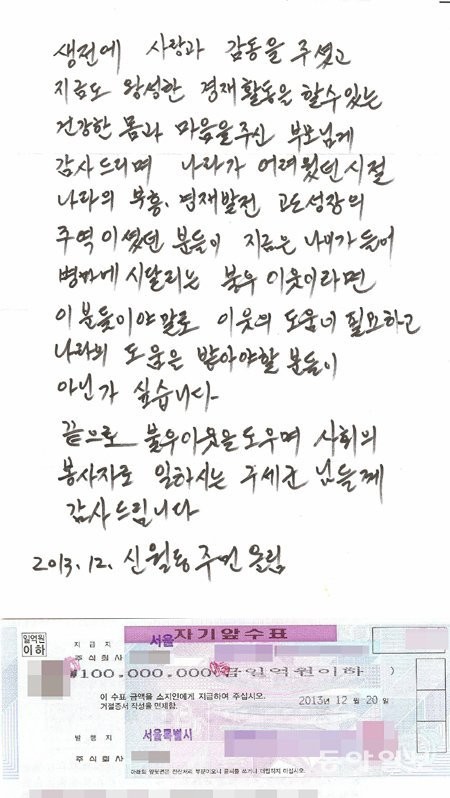 생전에 사랑과 감동을 주셨고
지금도 왕성한 경재활동을 할수있는
건강한 몸과 마음을 주신 부모님게
감사드리며 나라가 어려웠던 시절
나라의 부흥、경재발전 고도성장의
주역이셨던 분들이 지금은 나이가들어
병마에 시달리는 불우 이웃이라면
이분들이야 말로 이웃의 도움이 필요하고
나라의 도움은 받아야할 분들이
아닌가 싶습니다
끝으로 불우이웃을 도우며 사회의
봉사자로 일하시는 구세군 님들께
감사드립니다
2013.12. 신월동 주민 올림
일억원
이하
지 급 지 서울
자기앞수표
주식회사
₩100.000.000(금일억원이하 )
이 수표 금액을 소지인에게 지급하여 주십시오.
거절증서 작성을 면제함.
2013년 12월 20일
발 행 지 서울특별시
주식회사
동아일보